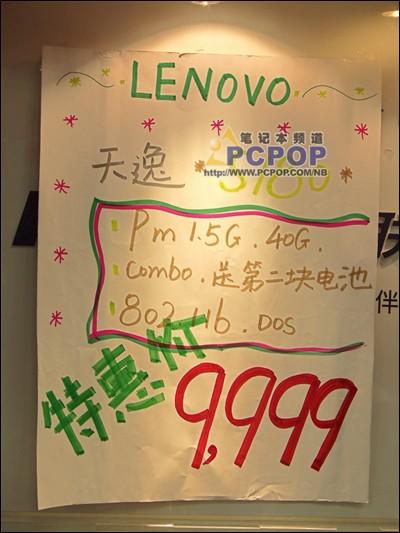 LENOVO
笔记本频道
PCPOP
http://www.PCPOP.COM/NB
天逸
Pm 1.5G. 40G.
combo. 送第二块电池
伴
802.11b. DOS
特惠价
9,999